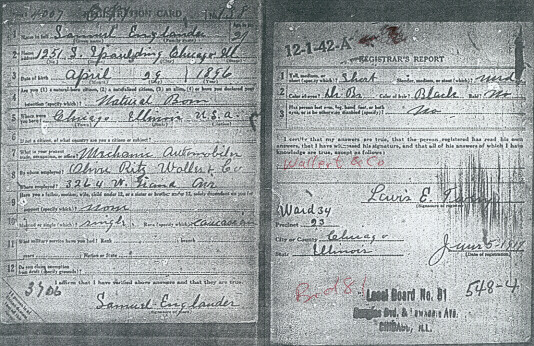 REGISTRATION CARD
1 Name in full Samuel Englander
21
2 Home address 1251 S. Spaulding Chicago Ill
3 Date of birth April 29 1896
4 Are you (1) a natural-born citizen, (2) a naturalized citizen, (3) an alien, (4) or have you declared your
intention (specify which)? Natural Born
5 Where were you born? Chicago Illinois U.S.A.
6 If not a citizen, of what country are you a citizen or subject?
7 What is your present trade, occupation, or office? Mechanic Automobiles
8 By whom employed? Wallert Co
Where employed? 3264 W. Grand Ave
9 Have you a father, mother, wife, child under 12, or a sister or brother under 12, solely dependent on you for
support (specify which)? None
10 Married or single (which)? Single Race (specify which)? Caucasian
11 What military service have you had? Rank branch
years Nation or State
12 Do you claim exemption from draft (specify grounds)?
I affirm that I have verified above answers and that they are true.
3906
Samuel Englander
12-1-42-A
REGISTRAR'S REPORT
1 Tall, medium, or short (specify which)? Short Slender, medium, or stout (which)? Med
2 Color of eyes? Color of hair? Black Bald? No
3 Has person lost arm, leg, hand, foot, or both
eyes, or is he otherwise disabled (specify)? No
I certify that my answers are true, that the person registered has read his own
answers, that I have witnessed his signature, and that all of his answers of which I have
knowledge are true, except as follows:
Wallert & Co
Lewis E.
Ward 34
Precinct 23
City or County Chicago
State Illinois
June 5-1917
(Date of registration)
Local Board No. 81
548-4
CHICAGO, ILL.